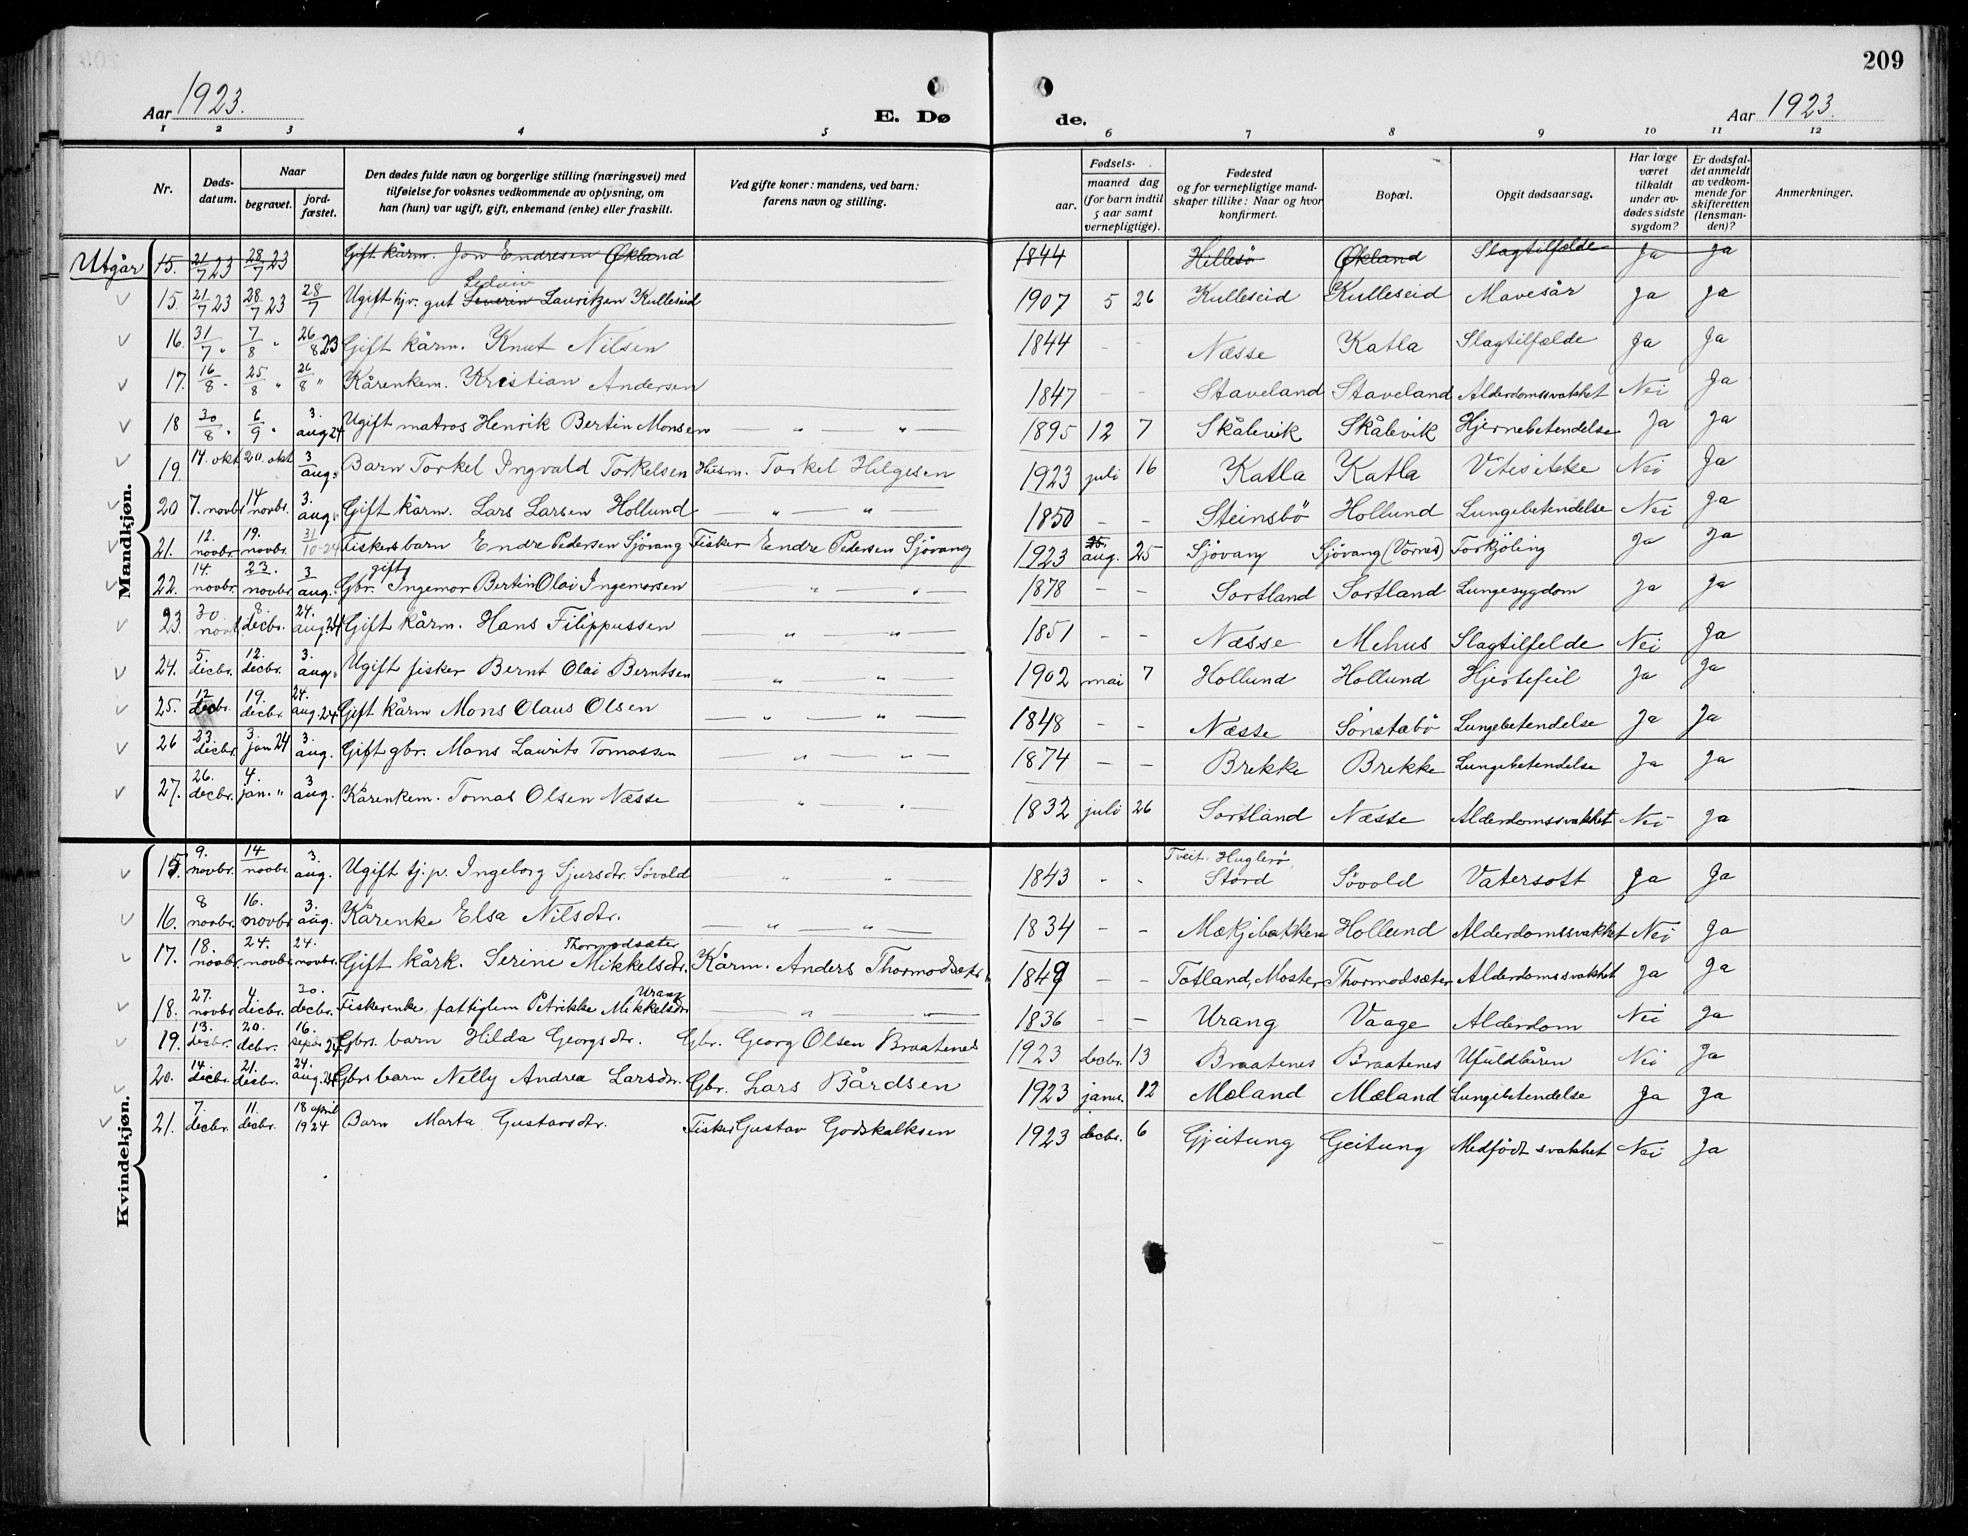 209
Aar 1923. E. Døde. Aar 1923.
1 2 3 4 5 6 7 8 9 10 11 12
Nr. Døds-datum. Naar begravet. jord-fæstet. Den dødes fulde navn og borgerlige stilling (næringsvei) med tilføielse for voksnes vedkommende av oplysning, om han (hun) var ugift, gift, enkemand (enke) eller fraskilt. Ved gifte koner: mandens, ved barn: farens navn og stilling. Fødsels- aar. maaned dag (for barn indtil 5 aar samt vernepligtige). Fødested og for vernepligtige mandskaper tillike: Naar og hvor konfirmert. Bopæl. Opgit dødsaarsag. Har læge været tilkaldt under avdødes sidste sygdom? Er dødsfaldet anmeldt av vedkommende for skifteretten (lensmanden)? Anmerkninger.
Mandkjøn.
Utgår 15. 21/7 23 28/7 23 Gift kårm. Jon Endresen Økland 1844 Hillesø Økland Slagtilfælde Ja Ja
15. 21/7 23 28/7 23 28/7 Ugift tjv. gut Severin Ludviv Lauritzen Kulleseid 1907 5 26 Kulleseid Kulleseid Mavesår Ja Ja
16. 31/7 " 7/8 " 26/8 23 Gift kårm. Knut Nilsen 1844 - - Næsse Katla Slagtilfælde Ja Ja
17. 16/8 " 25/8 " 26/8 " Kårenkem. Kristian Andersen 1847 - - Staveland Staveland Alderdomssvakhet Nei Ja
18 30/8 " 6/9 " 3. aug. 24 Ugift matros Henrik Bertin Monsen — " — " — 1895 12 7 Skålevik Skålevik Hjernebetendelse Ja Ja
19. 14. okt 20. okt 3 aug. " Barn Torkel Ingvald Torkelsen Husm. Torkel Helgesen 1923 juli 16 Katla Katla Vites ikke Nei Ja
20 7. novbr 14 novbr. 3. aug. " Gift kårm. Lars Larsen Hollund — " — " — 1850 - - Steinsbö Hollund Lungebetendelse Nei Ja
21. 12. novbr. 19. novbr. 31/10-24 Fiskers barn Endre Pedersen Sjövang Fisker Endre Pedersen Sjövang 1923 aug. 25 Sjövang Sjövang (Vornes) Forkjöling Ja Ja
22. 14. novbr. 23. novbr. 3 aug. Gbr. gift Ingemor Bertin Olai Ingemorsen — " — " — 1878 - - Sortland Sortland Lungesygdom Ja Ja
23. 30 novb 8. decbr. 24. aug. 24 Gift kårm. Hans Filippussen — " — " — 1851 - - Næsse Mehus Slagtilfelde Nei Ja
24. 5. decbr. 12. decbr. 3. aug. " Ugift fisker Bernt Olai Berntsen — " — " — 1902 mai 7 Hollund Hollund Hjertefeil Ja Ja
25. 12 decbr. 19. decbr. 24. aug. 24 Gift kårm Mons Olaus Olsen — " — " — 1848 - - Næsse Sönstabö Lungebetendelse Ja Ja
26 23. decbr. 3. jan 24 3. aug. Gift gbr. Mons Laurits Tomassen — " — " — 1874 - - Brekke Brekke Lungebetendelse Ja Ja
27. 26. decbr. 4. jan. " 3 aug. Kårenkem. Tomas Olsen Næsse — " — " — 1832 juli 26 Sortland Næsse Alderdomssvakhet Nei Ja
Kvindekjøn.
15. 9. novbr. 14 novbr. 3. aug. Ugift tj. p. Ingeborg Sjursdtr. Sövold " " 1843 - - Tveit, Huglen, Stord Sövold Vatersott Ja Ja
16. 8 novbr. 16. novbr 3. aug. Kårenke Elsa Nilsdtr. — " — " — 1834 - - Mækjebakken Hollund Alderdomssvakhet Nei Ja
17. 18. novbr. 24. novbr. 24. novbr. Gift kårk. Serine Mikkelsdtr. Thormodsæter Kårm. Anders Thormodsæter 1849 - - Totland, Moster Thormodsæter Alderdomssvakhet Ja Ja
18. 27. novbr 4. decbr. 30. decbr. Fiskerenke, fattiglem Petrikke Mikkelsdtr Urang — " — " — 1836 - - Urang Vaage Alderdom Nei Ja
19. 13. decbr. 20. decbr. 16. sepbr 24 Gbrs. barn Hilda Georgsdtr. Gbr. Georg Olsen Braatenes 1923 decbr. 13 Braatenes Braatenes Ufuldbåren Nei Ja
20. 14. decbr. 21. decbr. 24. aug. 24 Gbrs barn Nelly Andrea Larsdtr. Gbr. Lars Bårdsen 1923 janu. 12 Mæland Mæland Lungebetendelse Ja Ja
21. 7. decbr. 11. decbr. 18 april 1924 Barn Marta Gustavsdtr. Fisker Gustav Godskalksen 1923 decbr. 6 Gjeitung Geitung Medfödt svakhet Nei Ja